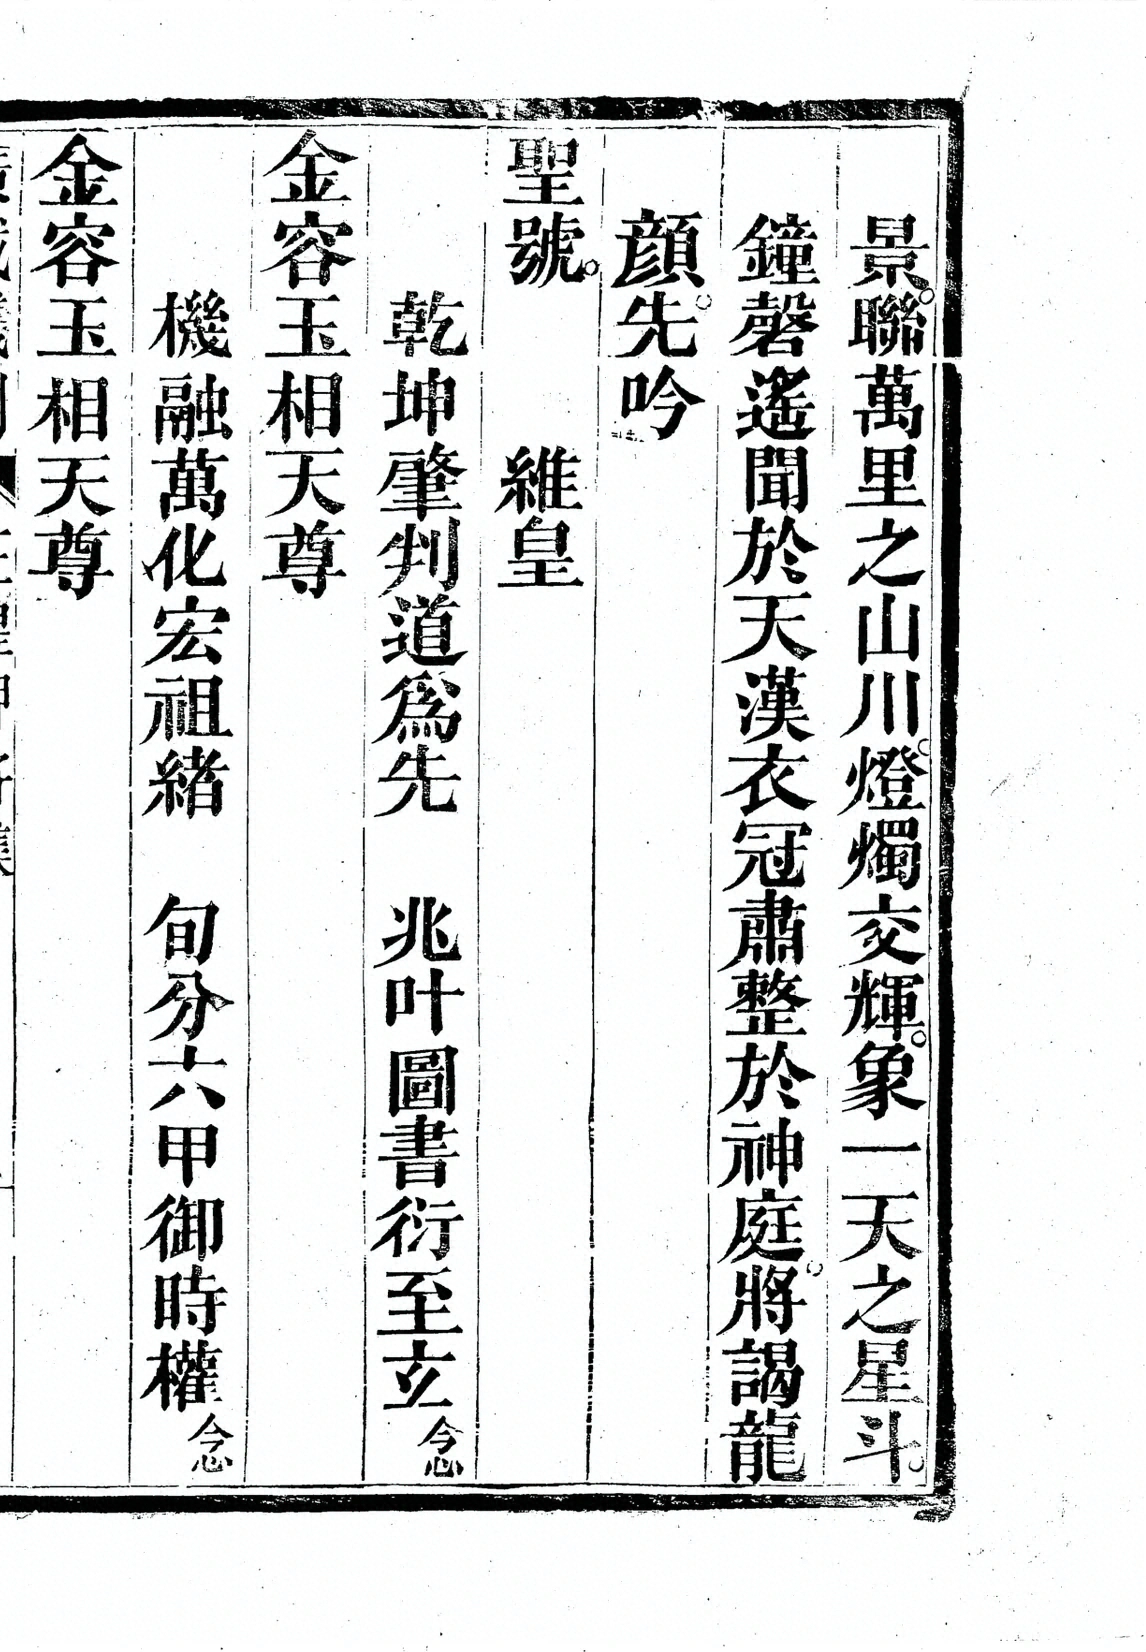 景。聯萬里之山川。燈燭交輝。象一天之星斗。
鐘磬遙聞於天漢衣冠肅整於神庭。將謁龍
顏。先吟
聖號。　維皇
乾坤肇判道爲先　兆叶圖書衍至玄念
金容玉相天尊
機融萬化宏祖緒　旬分六甲御時權念
金容玉相天尊